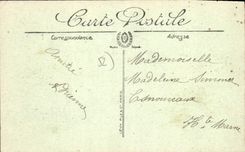 Carte Postale
Correspondance
Adresse
Amitié
Mademoiselle
Madeleine Simonin
Hte Marne